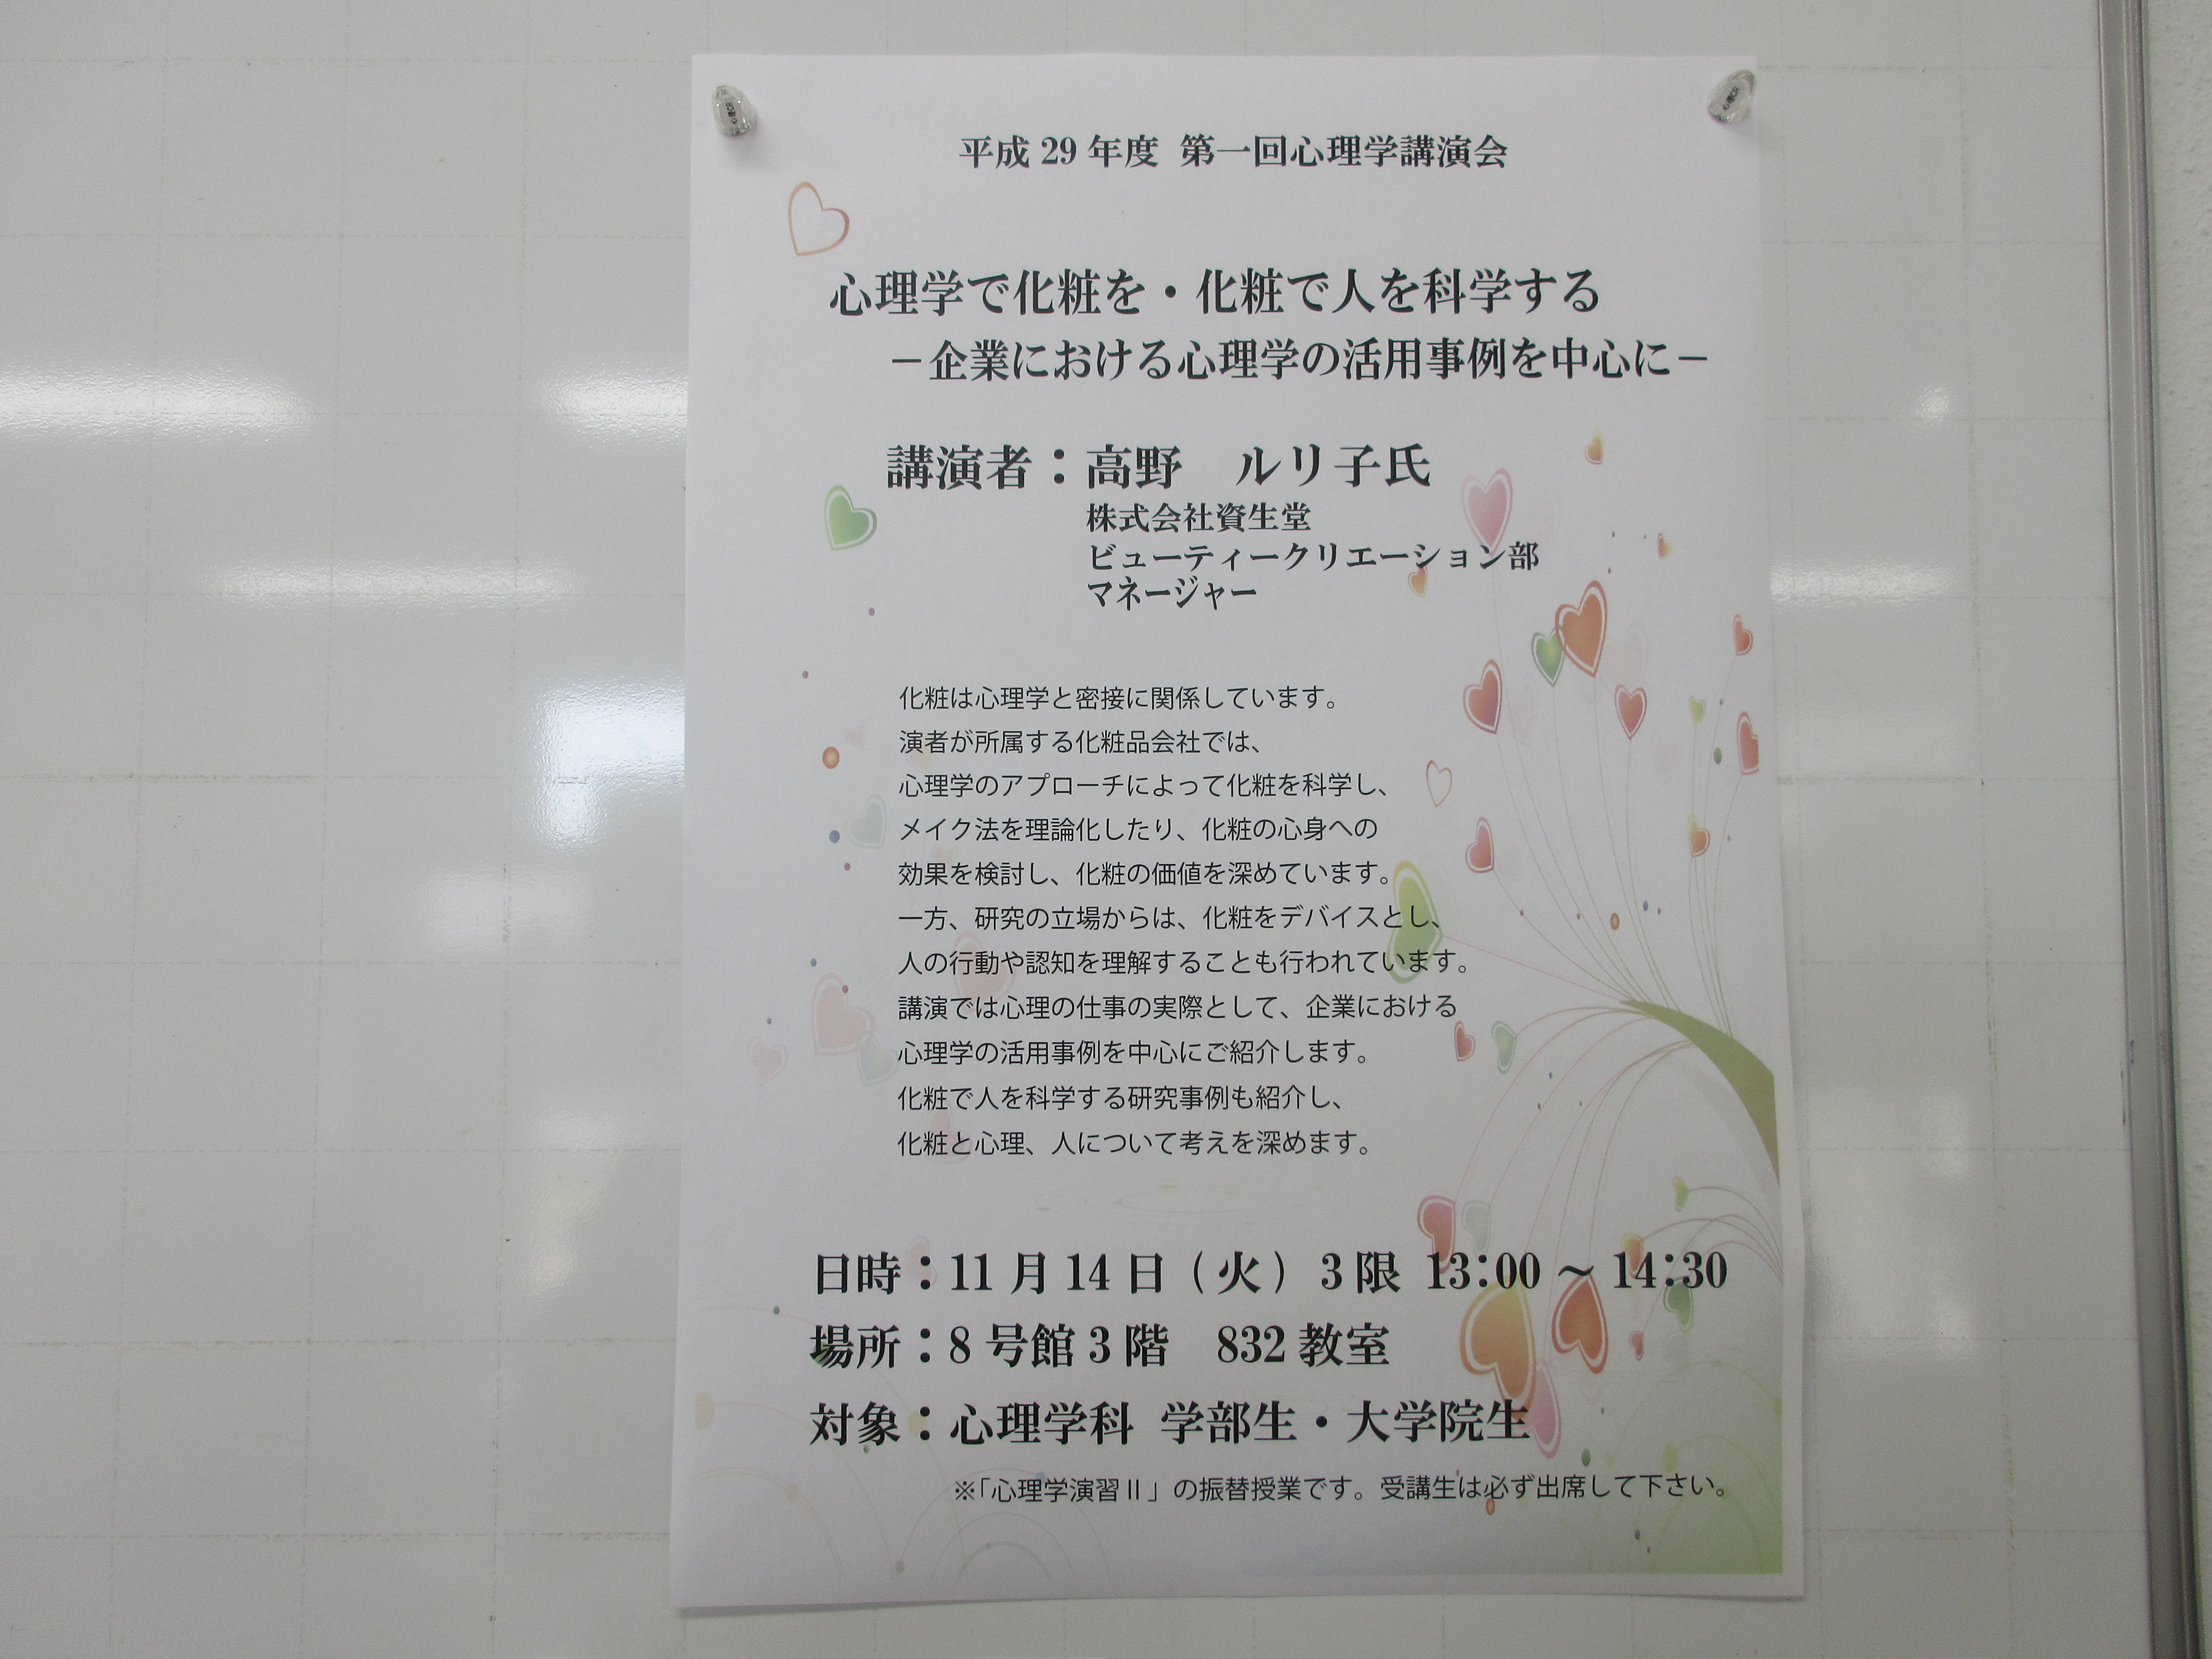 平成 29 年度 第一回心理学講演会
心理学で化粧を・化粧で人を科学する
－企業における心理学の活用事例を中心に－
講演者：高野　ルリ子氏
株式会社資生堂
ビューティークリエーション部
マネージャー
化粧は心理学と密接に関係しています。
演者が所属する化粧品会社では、
心理学のアプローチによって化粧を科学し、
メイク法を理論化したり、化粧の心身への
効果を検討し、化粧の価値を深めています。
一方、研究の立場からは、化粧をデバイスとし、
人の行動や認知を理解することも行われています。
講演では心理の仕事の実際として、企業における
心理学の活用事例を中心にご紹介します。
化粧で人を科学する研究事例も紹介し、
化粧と心理、人について考えを深めます。
日時：11 月 14 日（火） 3 限 13：00 ～ 14：30
場所：8 号館 3 階　832 教室
対象：心理学科 学部生・大学院生
※「心理学演習Ⅱ」の振替授業です。受講生は必ず出席して下さい。